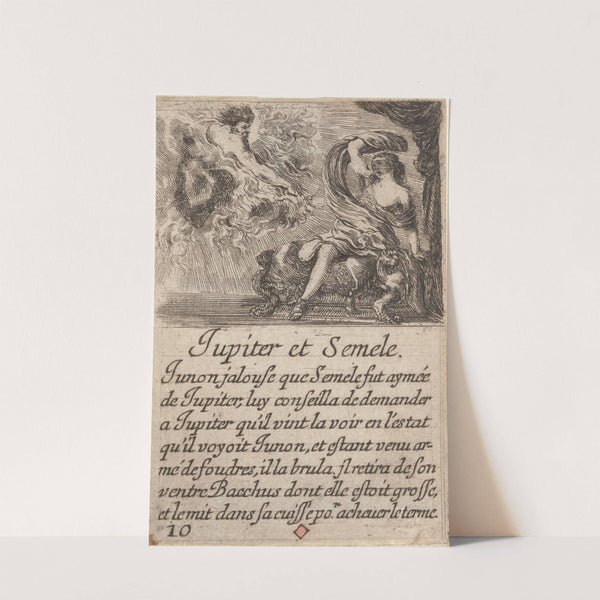 Iupiter et Semele.
Iunon jalouſe que Semele fut aymée
de Iupiter, luy conſeilla de demander
a Iupiter qu'il vint la voir en l'eſtat
qu'il voyoit Iunon, et eſtant venu ar-
mé de foudres, il la brula. jl retira de ſon
ventre Bacchus dont elle eſtoit groſſe,
et le mit dans ſa cuiſſe po.r acheuer le terme.
10